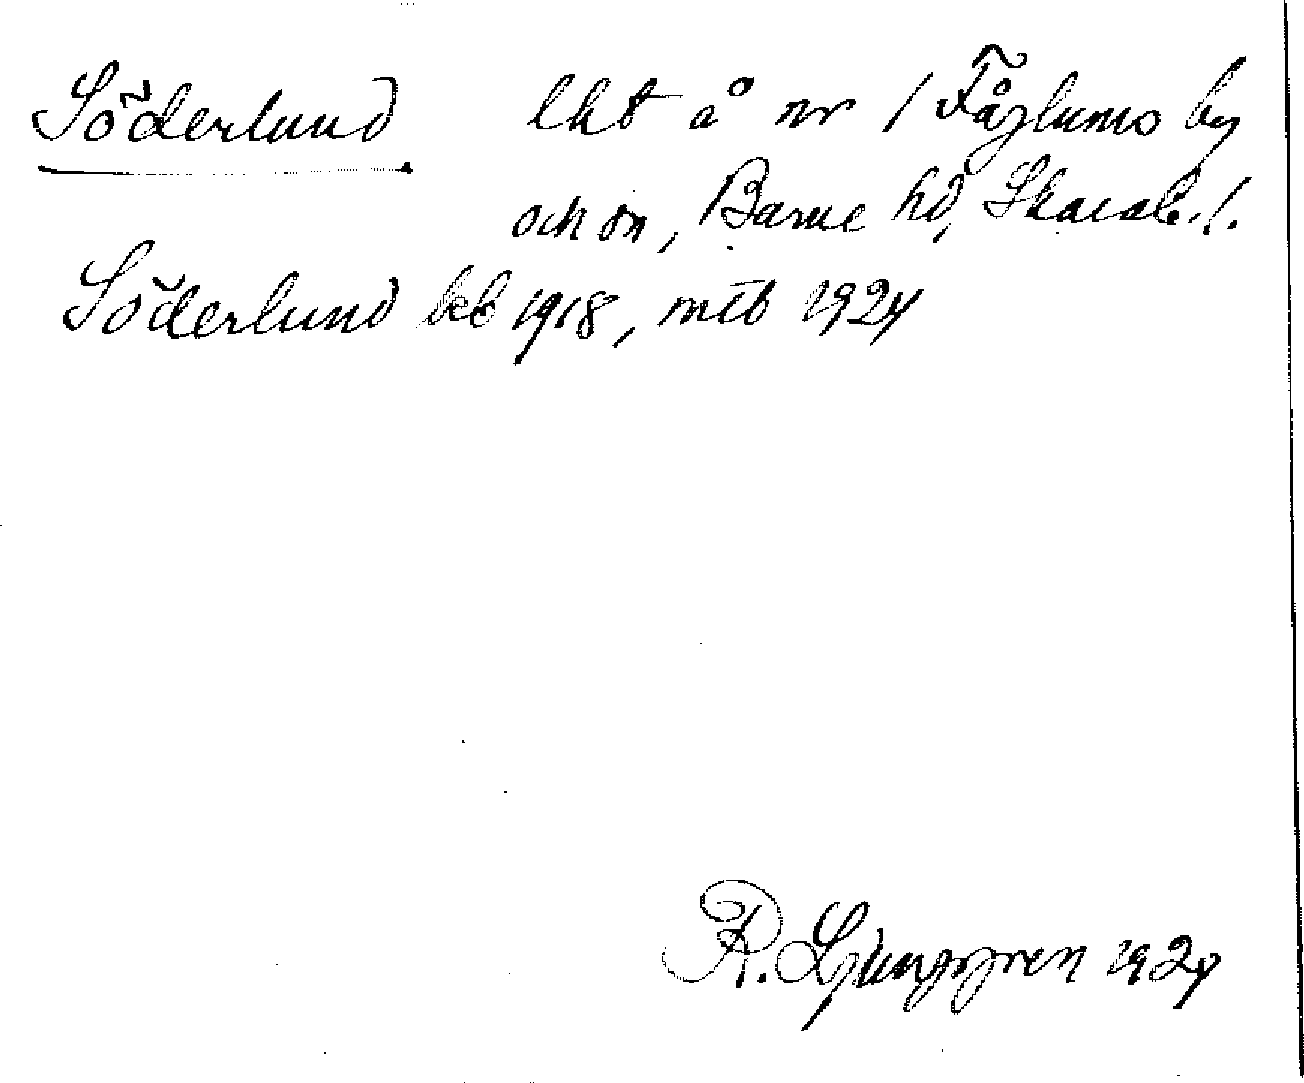 Söderlund lht å nr 1 Fåglums by
och sn, Barne hd, Skarab. l.
Söderlund kb 1918, mtb 1924
R. Ljunggren 1924